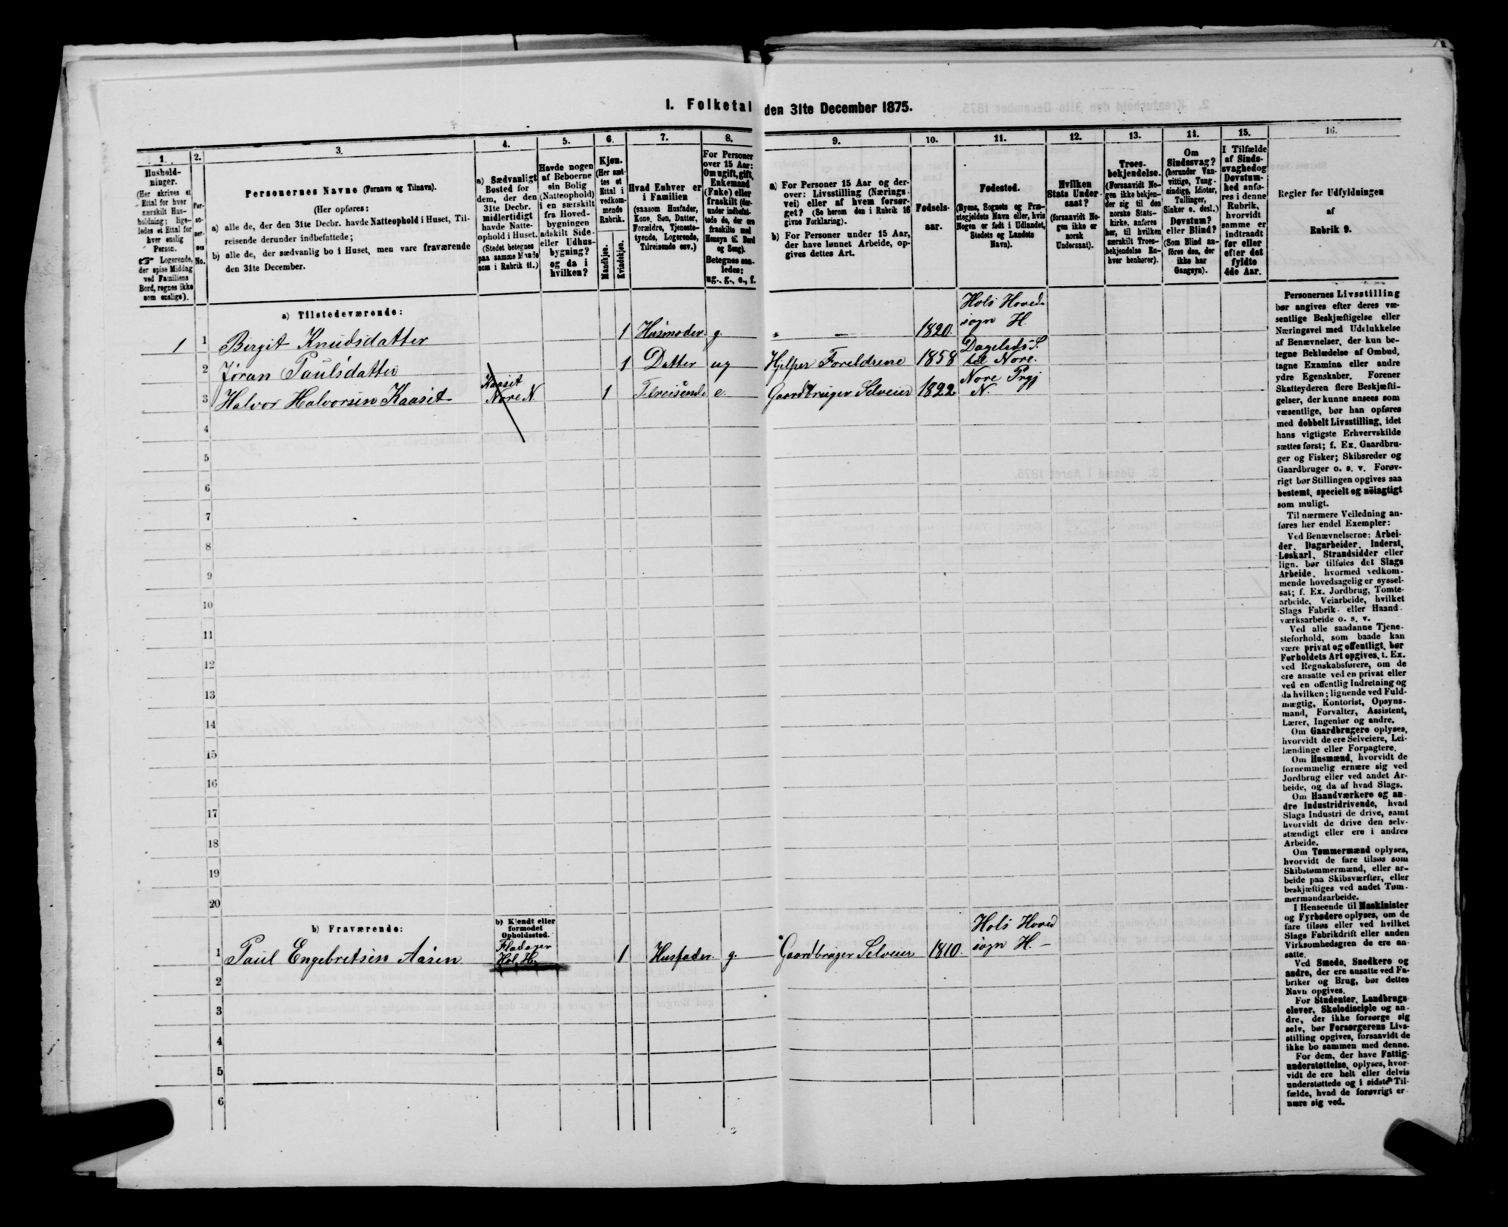 I. Folketal den 31te December 1875.
1. 2. 3. 4. 5. 6. 7. 8. 9. 10. 11. 12. 13. 14. 15. 16.
Hushold-
ninger.
(Her skrives et
Ettal for hver
særskilt Hus-
holdning; lige-
ledes et Ettal for
hver enslig
Person.
☞ Logerende,
der spise Middag
ved Familiens
Bord, regnes ikke
som enslige).
Personernes Navne (Fornavn og Tilnavn).
(Her opføres:
a) alle de, der den 31te Decbr. havde Natteophold i Huset, Til-
reisende derunder indbefattede;
b) alle de, der sædvanlig bo i Huset, men vare fraværende
den 31te December.
a) Sædvanligt
Bosted for
dem, der den
31te Decbr.
midlertidigt
havde Natte-
ophold i Huset.
(Stedet betegnes
paa samme Maade
som i Rubrik 11.)
Havde nogen
af Beboerne
sin Bolig
(Natteophold)
i en særskilt
fra Hoved-
bygningen
adskilt Side-
eller Udhus-
bygning?
og da i
hvilken?
Kjøn.
(Her sæt-
tes et
Ettal i
vedkom-
mende
Rubrik.
Mandkjøn.
Kvindekjøn.
Hvad Enhver er
i Familien
(saasom Husfader,
Kone, Søn, Datter,
Forældre, Tjeneste-
tyende, Logerende,
Tilreisende osv.)
For Personer
over 15 Aar:
Om ugift, gift,
Enkemand
(Enke) eller
fraskilt
Betegnes saa-
ledes:
ug., g., e., f.
a) For Personer 15 Aar og der-
over: Livsstilling (Nærings-
vei) eller af hvem forsør-
get? (Se herom den i Rubrik 16
givne Forklaring).
b) For Personer under 15 Aar,
der have lønnet Arbeide, op-
gives dettes Art.
Fødsels-
aar.
Fødested.
(Byens, Sognets og Præ-
stegjeldets Navn eller, hvis
Nogen er født i Udlandet,
Stedets og Landets
Navn).
Hvilken
Stats Under-
saat?
(forsaavidt No-
gen ikke er
norsk
Undersaat).
Troes-
bekjendelse.
(Forsaavidt No-
gen ikke bekjen-
der sig til den
norske Stats-
kirke, anføres
her, til hvilken
særskilt Troes-
bekjendelse En-
hver henhører).
Om
Sindssvag?
(herunder Van-
vittige, Tung-
sindige, Idioter,
Tullinger,
Sinker o. desl.)
Døvstum?
eller Blind?
(Som Blind an-
føres den, der
ikke har
Gangsyn).
I Tilfælde
af Sinds-
svaghed og
Døvstum-
hed anfø-
res i denne
Rubrik,
hvorvidt
samme er
indtraadt
før eller
efter det
fyldte
4de Aar.
Regler for Udfyldningen
af
Rubrik 9.
a) Tilstedeværende:
1 1 Bergit Knudsdatter 1 Husmoder g " — 1820 Hols Hoved-
sogn H.
2 Jøran Paulsdatter 1 Datter ug Hjelper Foreldrene 1858 Dagelids S.
til Nore.
3 Halvor Halvorsen Kaasit Kaasit
Nore N. 1 Tilreisende e. Gaardbruger Selveier 1822 Nore Prgj
N.
4
5
6
7
8
9
10
11
12
13
14
15
16
17
18
19
20
b) Fraværende:
b) Kjendt eller
formodet
Opholdssted.
1 Paul Engebretsen Aasen Fladager
Hol H. 1 Husfader g. Gaardbruger Selveier 1810. Hols Hoved
sogn H.
2
3
4
5
6
Personernes Livsstilling
bør angives efter deres væ-
sentlige Beskjæftigelse eller
Næringsvei med Udelukkelse
af Benævnelser, der kun be-
tegne Beklædelse af Ombud,
tagne Examina eller andre
ydre Egenskaber. Forener
Skatteyderen flere Beskjæfti-
gelser, der kunne ansees som
væsentlige, bør han opføres
med dobbelt Livsstilling, idet
hans vigtigste Erhvervskilde
sættes først; f. Ex. Gaardbru-
ger og Fisker; Skibsreder og
Gaardbruger o. s. v. Forøv-
rigt bør Stillingen opgives saa
bestemt, specielt og nøiagtigt
som muligt.
Til nærmere Veiledning an-
føres her endel Exempler:
Ved Benævnelserne: Arbei-
der, Dagarbeider, Inderst,
Løskarl, Strandsidder eller
lign. bør tilføies det Slags
Arbeide, hvormed vedkom-
mende hovedsagelig er syssel-
sat; f. Ex. Jordbrug, Tomte-
arbeide, Veiarbeide, hvilket
Slags Fabrik- eller Haand-
værksarbeide o. s. v.
Ved alle saadanne Tjene-
steforhold, som baade kan
være privat og offentligt, bør
Forholdets Art opgives, f. Ex.
ved Regnskabsførere, om de
ere ansatte ved en privat eller
ved en offentlig Indretning og
da hvilken; lignende ved Fuld-
mægtig, Kontorist, Opsyns-
mand, Forvalter, Assistent,
Lærer, Ingeniør og andre.
Om Gaardbrugere oplyses,
hvorvidt de ere Selveiere, Lei-
lændinge eller Forpagtere.
Om Husmænd, hvorvidt de
fornemmelig ernære sig ved
Jordbrug eller ved andet Ar-
beide, og da af hvad Slags.
Om Haandværkere og an-
dre Industridrivende, hvad
Slags Industri de drive, samt
hvorvidt de drive den selv-
stændigt eller ere i andres
Arbeide.
Om Tømmermænd oplyses,
hvorvidt de fare tilsøs som
Skibstømmermænd, eller ar-
beide paa Skibsværfter, eller
beskjæftiges ved andet Tøm-
mermandsarbeide.
I Henseende til Maskinister
og Fyrbødere oplyses, om de
fare tilsøs eller ved hvilket
Slags Fabrikdrift eller anden
Virksomhedsgren de ere an-
satte.
Ved Smede, Snedkere og
andre, der ere ansatte ved Fa-
briker og Brug, bør dettes
Navn opgives.
For Studenter, Landbrugs-
elever, Skoledisciple og an-
dre, der ikke forsørge sig
selv, bør Forsørgerens Livs-
stilling opgives, forsaavidt de
ikke bo sammen med denne.
For dem, der have Fattig-
understøttelse, oplyses, hvor-
vidt de ere helt eller delvis
understøttede og i sidste Til-
fælde, hvad de forøvrigt er-
nære sig ved.